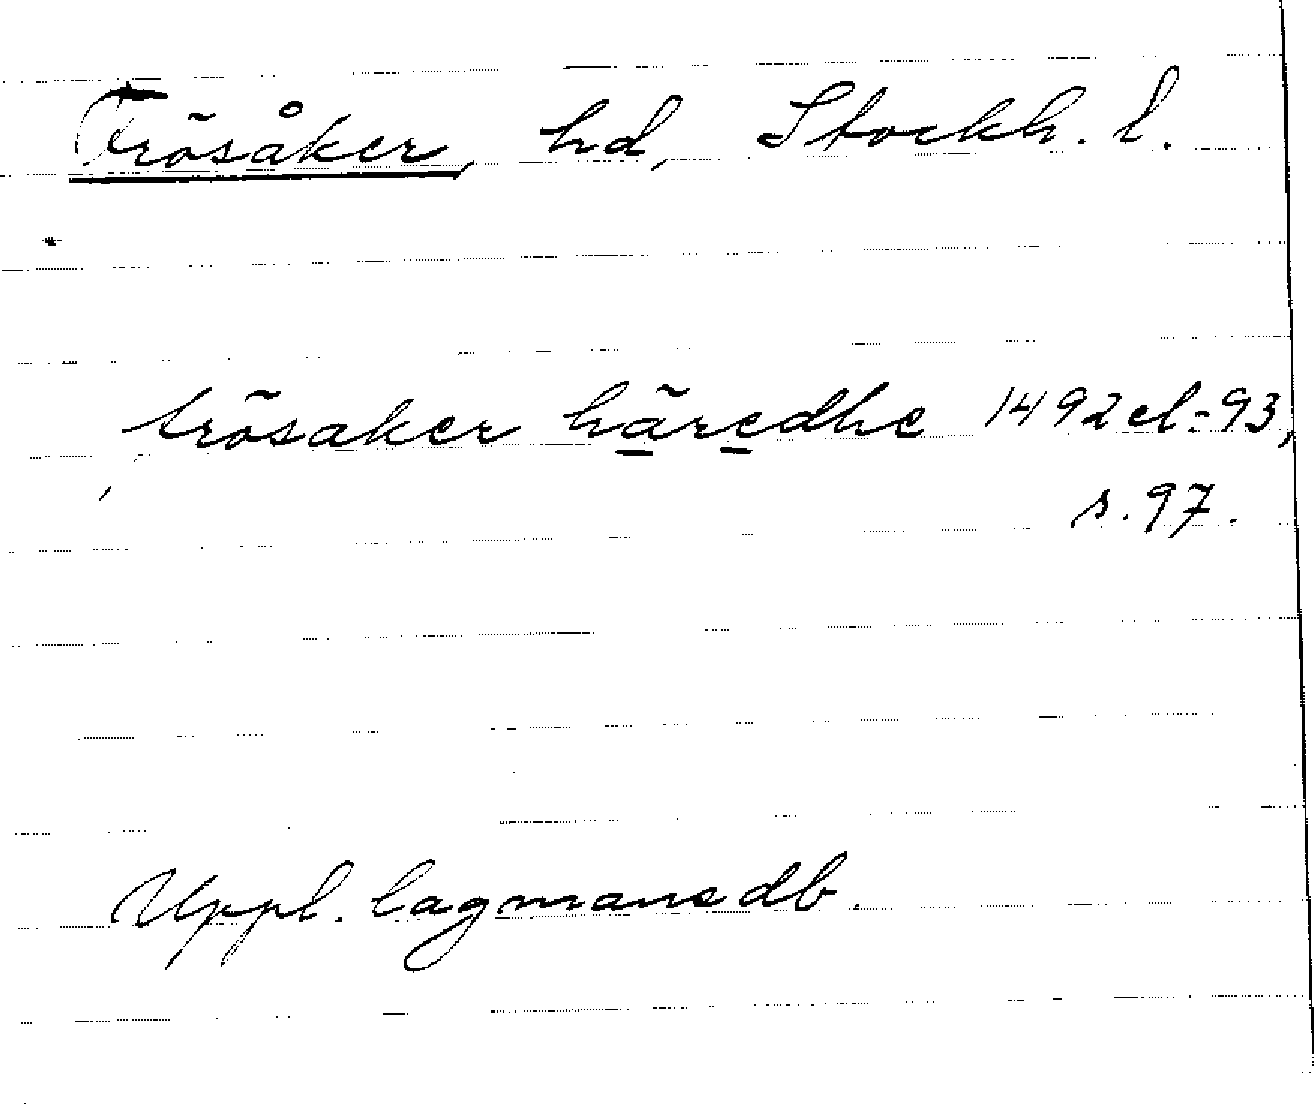 Frösåker, hd, Stockh. l.
trösaker häredhe 1492 el. 93,
s. 97.
Uppl. lagmansdb.